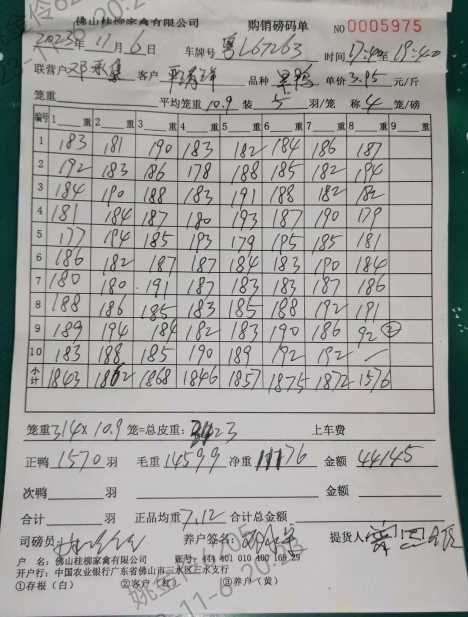 佛山桂柳家禽有限公司 购销磅码单 NO 0005975
2023年11月6日 车牌号 粤L67263 时间17:40至19:40
联营户 邓 客户 品种 单价3.95元/斤
笼重 平均笼重10.9 装5羽/笼 称4笼/磅
编号 1 重 2 重 3 重 4 重 5 重 6 重 7 重 8 重 9 重
1 183 181 190 183 182 184 186 187
2 192 183 186 178 188 185 182 194
3 184 190 188 183 191 188 182 182
4 181 184 187 180 193 187 190 179
5 177 194 185 193 179 195 185 181
6 186 182 187 187 184 183 190 184
7 180 180 191 187 183 183 187 186
8 188 186 185 183 185 188 192 191
9 189 194 184 182 183 190 186 92 ②
10 183 188 185 190 189 192 192 —
小计 1843 1862 1868 1846 1857 1875 1872 1576
笼重314×10.9笼=总皮重:3423 上车费
正鸭1570羽 毛重14599 净重11176 金额44145
次鸭 羽 金额
合计 羽 正品均重7.12 合计总金额
司磅员: 养户签名: 提货人:
户 名:佛山桂柳家禽有限公司 账号:444 401 010 400 169 29
开户行:中国农业银行广东省佛山市三水区三水支行
①存根(白) ②客户(红) ③养户(黄)